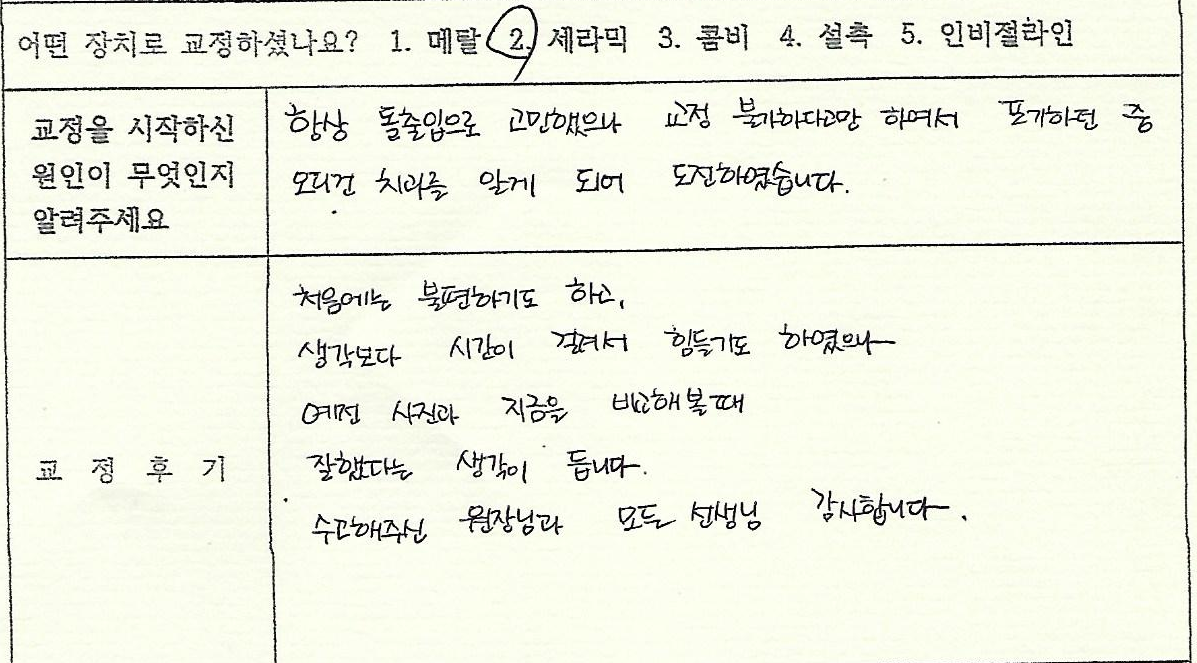 어떤 장치로 교정하셨나요? 1. 메탈 2. 세라믹 3. 콤비 4. 설측 5. 인비절라인
교정을 시작하신
원인이 무엇인지
알려주세요
항상 돌출입으로 고민했으나 교정 불가하다고만 하여서 포기하던 중
오디건 치과를 알게 되어 도전하였습니다.
교 정 후 기
처음에는 불편하기도 하고,
생각보다 시간이 걸려서 힘들기도 하였으나
예전 사진과 지금을 비교해볼때
잘했다는 생각이 듭니다.
수고해주신 원장님과 모든 선생님 감사합니다.